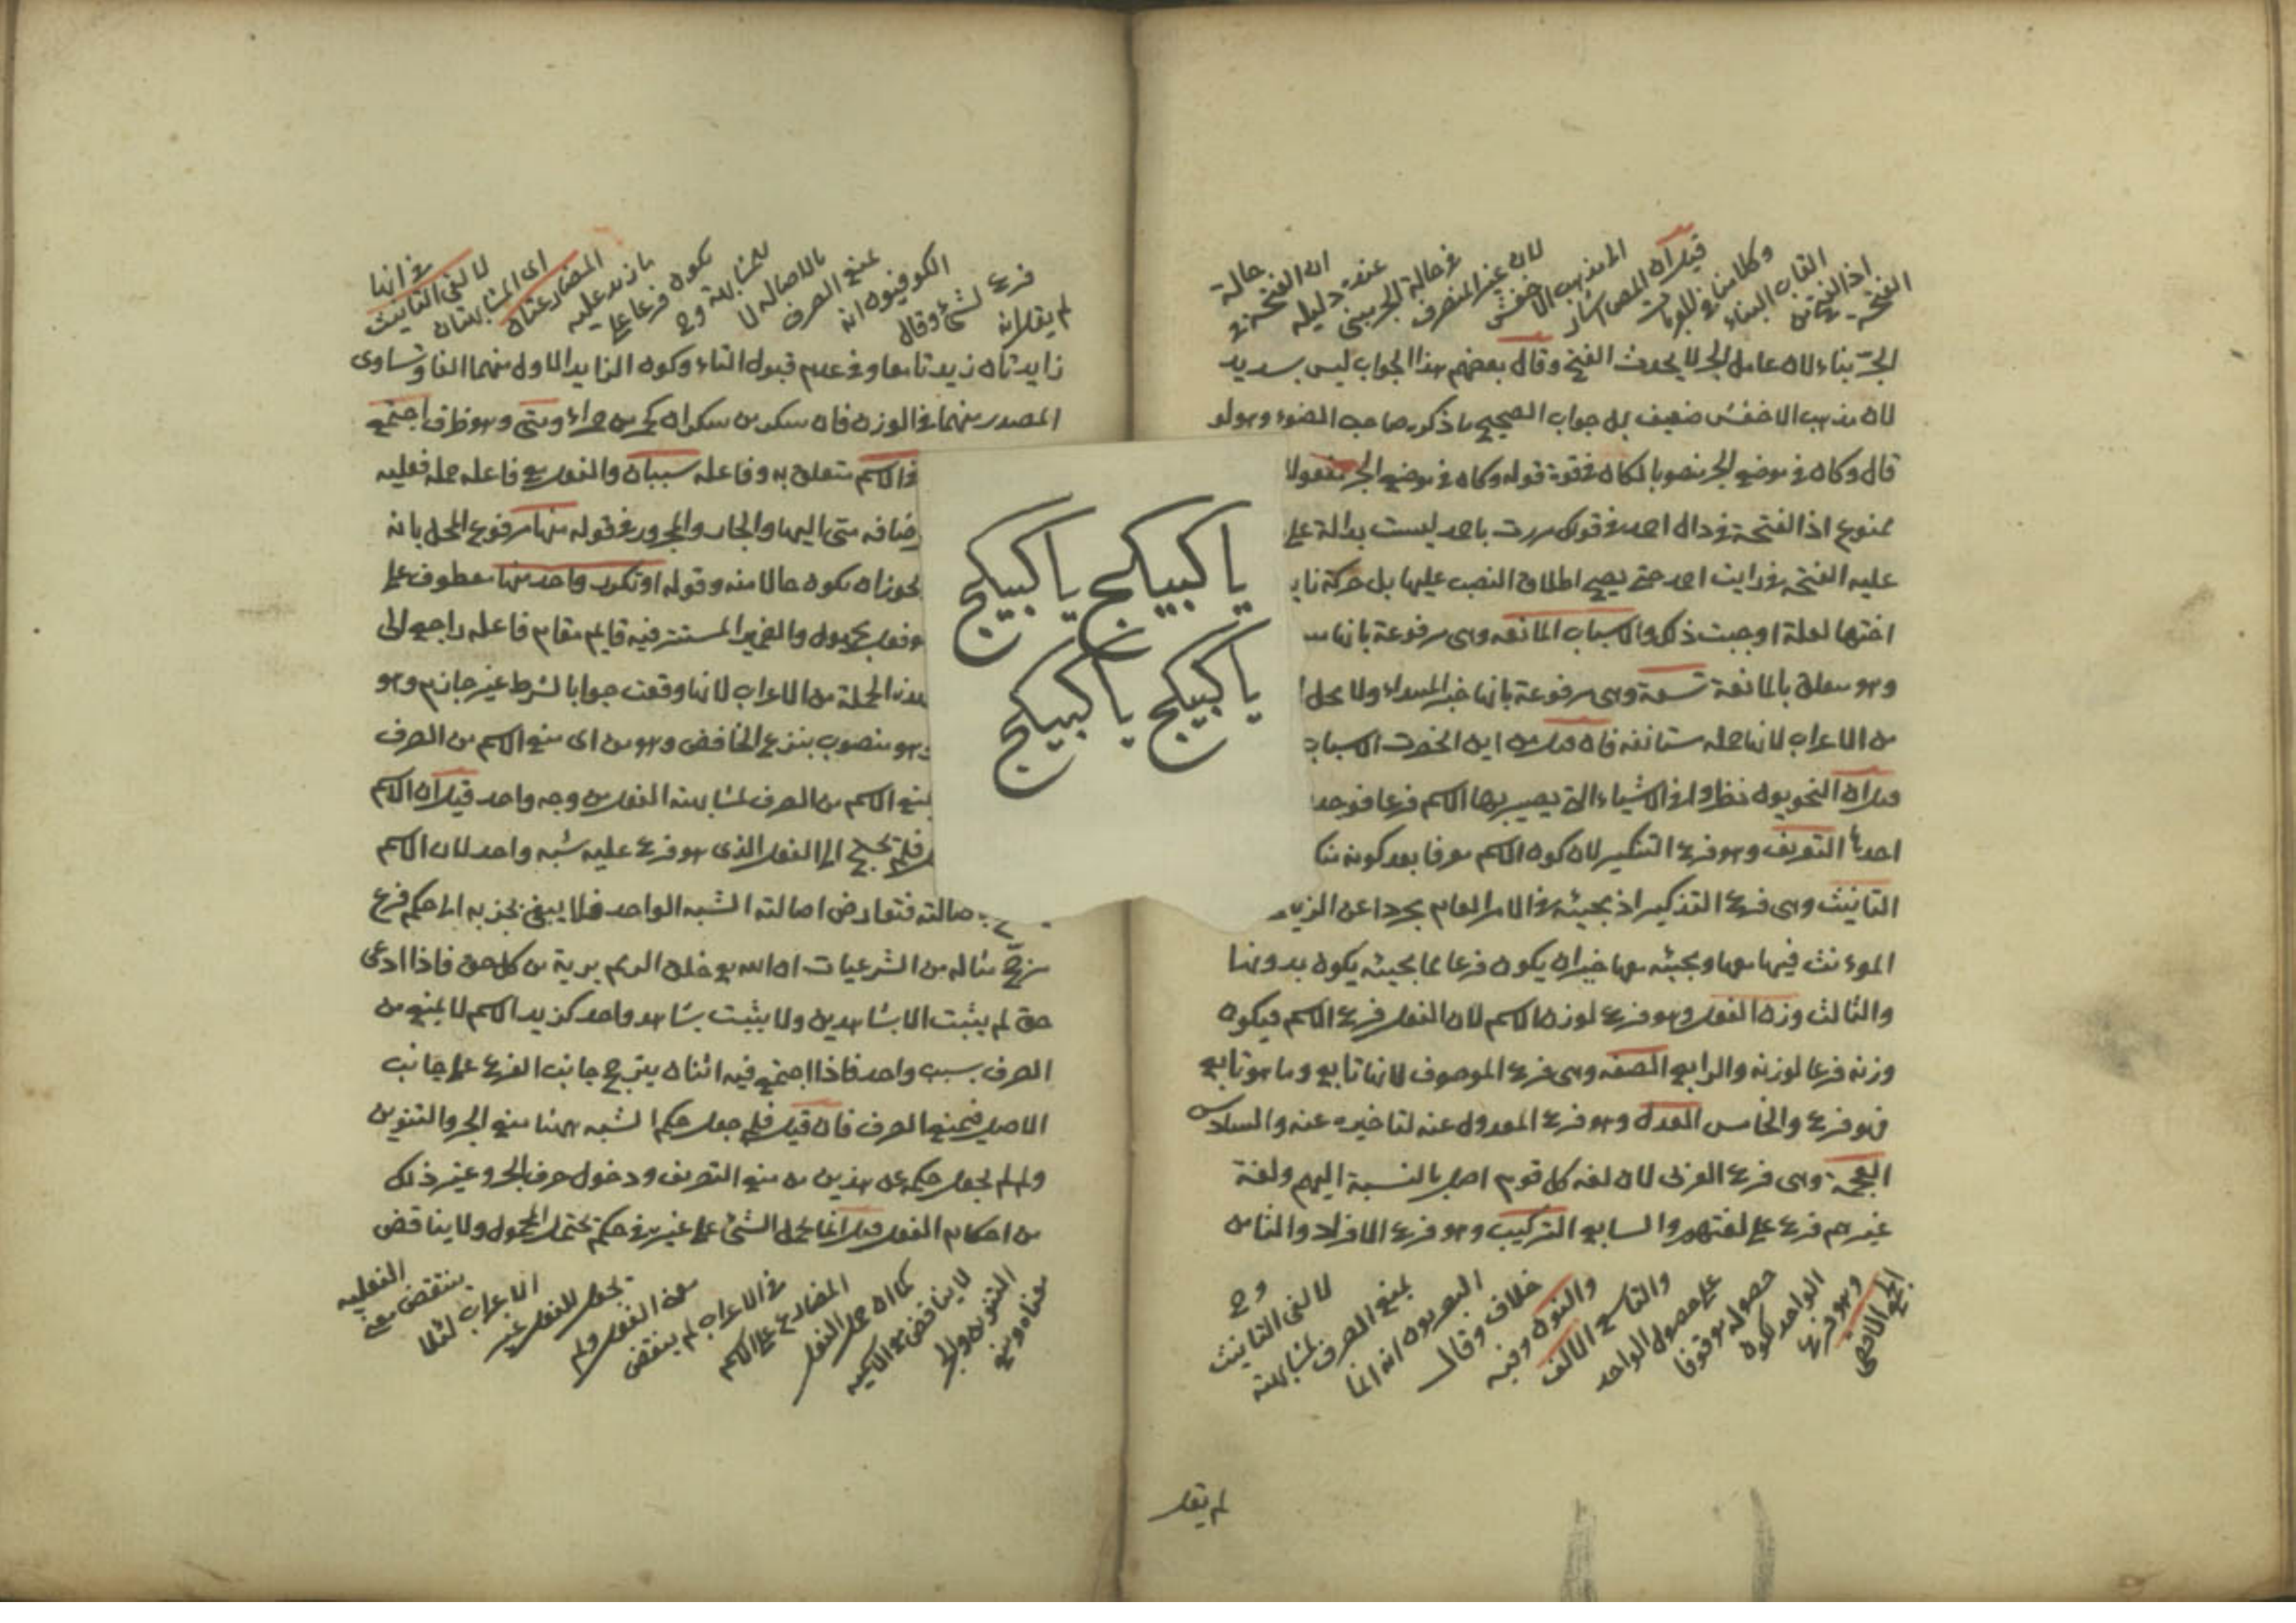 الفتحة
اذ
القاب البناء
وكلامنا في
قيل ان المص اشار
الى مذهب الاخفش
لان غير المنصرف
في حالة الجر يبنى
عنده دليله
ان الفتحة في
حالة
الجر بناء لان عامل الجر لا يحدث الفتح وقال بعضهم هذا الجواب ليس بسديد
لان مذهب الاخفش ضعيف بل جواب الصحيح ما ذكره صاحب الضوء وهو لو
قال وكان في موضع الجر منصوبا لكان في قوة قوله وكان في موضع الجر مفعولا
ممنوع اذ الفتحة في دال احمد في قولك مررت باحمد ليست بدالة على
عليه الفتحة في رايت احمد حتى يصح اطلاق النصب عليها بل حركة
اختها لعلة اوجبت ذلك والاسباب المانعة وهى مرفوعة بانها
وهو متعلق بالمانعة تسعة وهى مرفوعة بانها خبر المبتداء ولا محل
من الاعراب لانها جملة مستانفة فان قيل من اين انحصرت الاسباب
قيل ان النحويون نظروا في الاشياء التى يصير بها الاسم فرعا فوجد
احدها التعريف وهو فرع التنكير لان كون الاسم معرفا بعد كونه
التانيث وهى فرع التذكير اذ مجيئه في الامر العام مجردا عن
الموءنث فيها معها ومجيئه معها خبران يكون فرعا لما مجيئه يكون بدونها
والثالث وزن الفعل وهو فرع لوزن الاسم لان الفعل فرع الاسم فيكون
وزنه فرعا لوزنه والرابع الصفة وهى فرع الموصوف لانها تابع وما هو تابع
فهو فرع والخامس العدل وهو فرع المعدول عنه لتاخيره عنه والسادس
العجمة وهى فرع العربى لان لغة كل قوم اصل بالنسبة اليهم ولغة
غيرهم فرع على لغتهم والسابع التركيب وهو فرع الافراد والثامن
الجمع الاقصى
وهو فرع
الواحد لكون
حصوله موقوفا
على حصول الواحد
والتاسع الالف
والنون وفيه
خلاف وقال
البصريون انه انما
يمنع الصرف لمشابهته
لالفى التانيث
وح
لم يقل
يا كبيكج يا كبيكج
يا كبيكج يا كبيكج
لم يقل انه
فرع لشئ وقال
الكوفيون انه
يمنع الصرف
بالاصالة لا
للمشابهة وح
يكون فرعا على
ما زيد عليه
المضارعتان
اى المشابهتان
لالفى التانيث
في انها
زايدتان زيدتا معا وفي عدم قبول التاء وكون الزايد الاول منهما الفا وتساوى
المصدر منهما في الوزن فان سكر من سكران كحر من حراء ومتى وهو ظرف اجتمع
في الاسم متعلق به وفاعله سببان والفعل مع فاعله جملة فعلية
متى اليها والجار والمجرور في قوله منها مرفوع المحل بانه
يجوز ان يكون حالا منه وقوله او تكرر واحد منها معطوف على
وفعل مجهول والضمير المستتر فيه قايم مقام فاعله راجع الى
الجملة من الاعراب لانها وقعت جوابا لشرط غير جازم وهو
وهو منصوب بنزع الخافض وهو من اى منع الاسم من الصرف
يمنع الاسم من الصرف لمشابهته الفعل من وجه واحد قيل ان الاسم
الى الفعل الذى هو فرع عليه شبه واحد لان الاسم
صالته فتعارض اصالته الشبه الواحد فلا يبقى بجذبه الى حكم فرع
مثاله من الشرعيات ان الله مع خلق الذمم برية من كل حق فاذا ادعى
حق لم يثبت الا بشاهدين ولا يثبت بشاهد واحد كزيد الاسم لا يمنع من
الصرف بسبب واحد فاذا اجتمع فيه اثنان يترجح جانب الفرع على جانب
الاصل فيمنع الصرف فان قيل فلم جعل حكم الشبه ههنا منع الجر والتنوين
ولم لم يجعل حكمه عن هذين من منع التصريف ودخول حرف الجر وغير ذلك
من احكام الفعل قيل انما يحمل الشئ على غيره في حكم يحتمل المحمول ولا يناقض
معناه ومنع
التنوين والجر
لا يناقض مع الاسمية
كما ان حمل الفعل
المضارع على الاسم
في الاعراب لم ينقض
معنى الفعل ولم
يجعل للفعل غير
الاعراب لئلا
ينتقض معنى
الفعلية